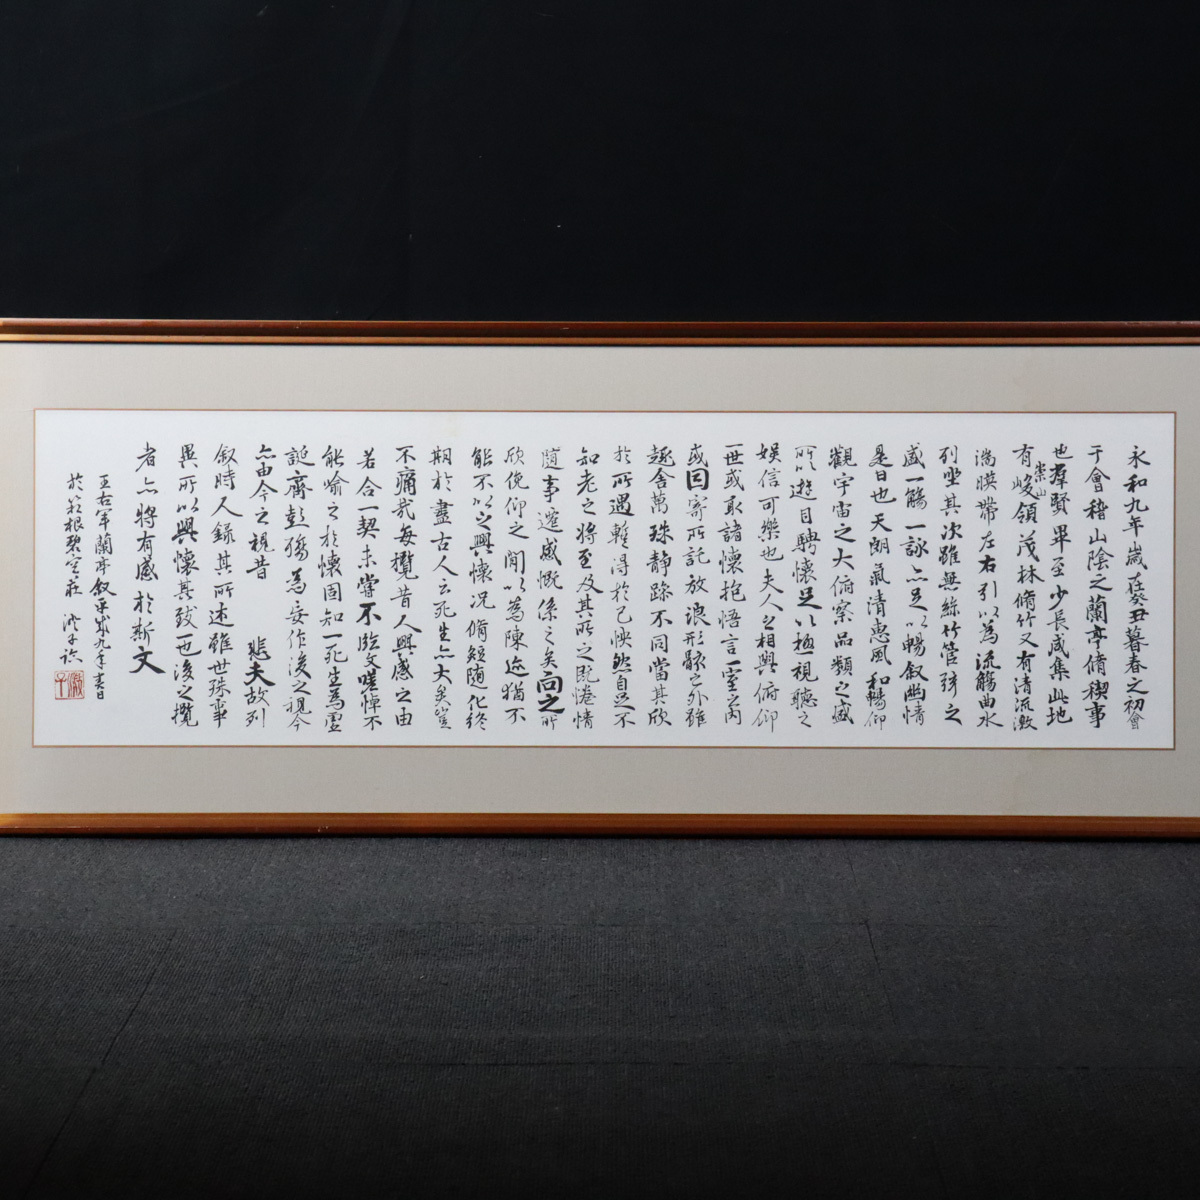 永和九年歲在癸丑暮春之初會
于會稽山陰之蘭亭脩稧事
也羣賢畢至少長咸集此地
有崇山峻領茂林脩竹又有清流激
湍暎帶左右引以為流觴曲水
列坐其次雖無絲竹管弦之
盛一觴一詠亦足以暢叙幽情
是日也天朗氣清惠風和暢仰
觀宇宙之大俯察品類之盛
所以遊目騁懷足以極視聽之
娛信可樂也夫人之相與俯仰
一世或取諸懷抱悟言一室之內
或因寄所託放浪形骸之外雖
趣舍萬殊静躁不同當其欣
於所遇暫得於己怏然自足不
知老之將至及其所之既惓情
隨事遷感慨係之矣向之所
欣俛仰之閒以為陳迹猶不
能不以之興懷況脩短隨化終
期於盡古人云死生亦大矣豈
不痛哉每攬昔人興感之由
若合一契未嘗不臨文嗟悼不
能喻之於懷固知一死生為虛
誕齊彭殤為妄作後之視今
亦由今之視昔 悲夫故列
叙時人錄其所述雖世殊事
異所以興懷其致一也後之攬
者亦將有感於斯文
王右軍蘭亭叙平成九年書
於箱根碧空莊